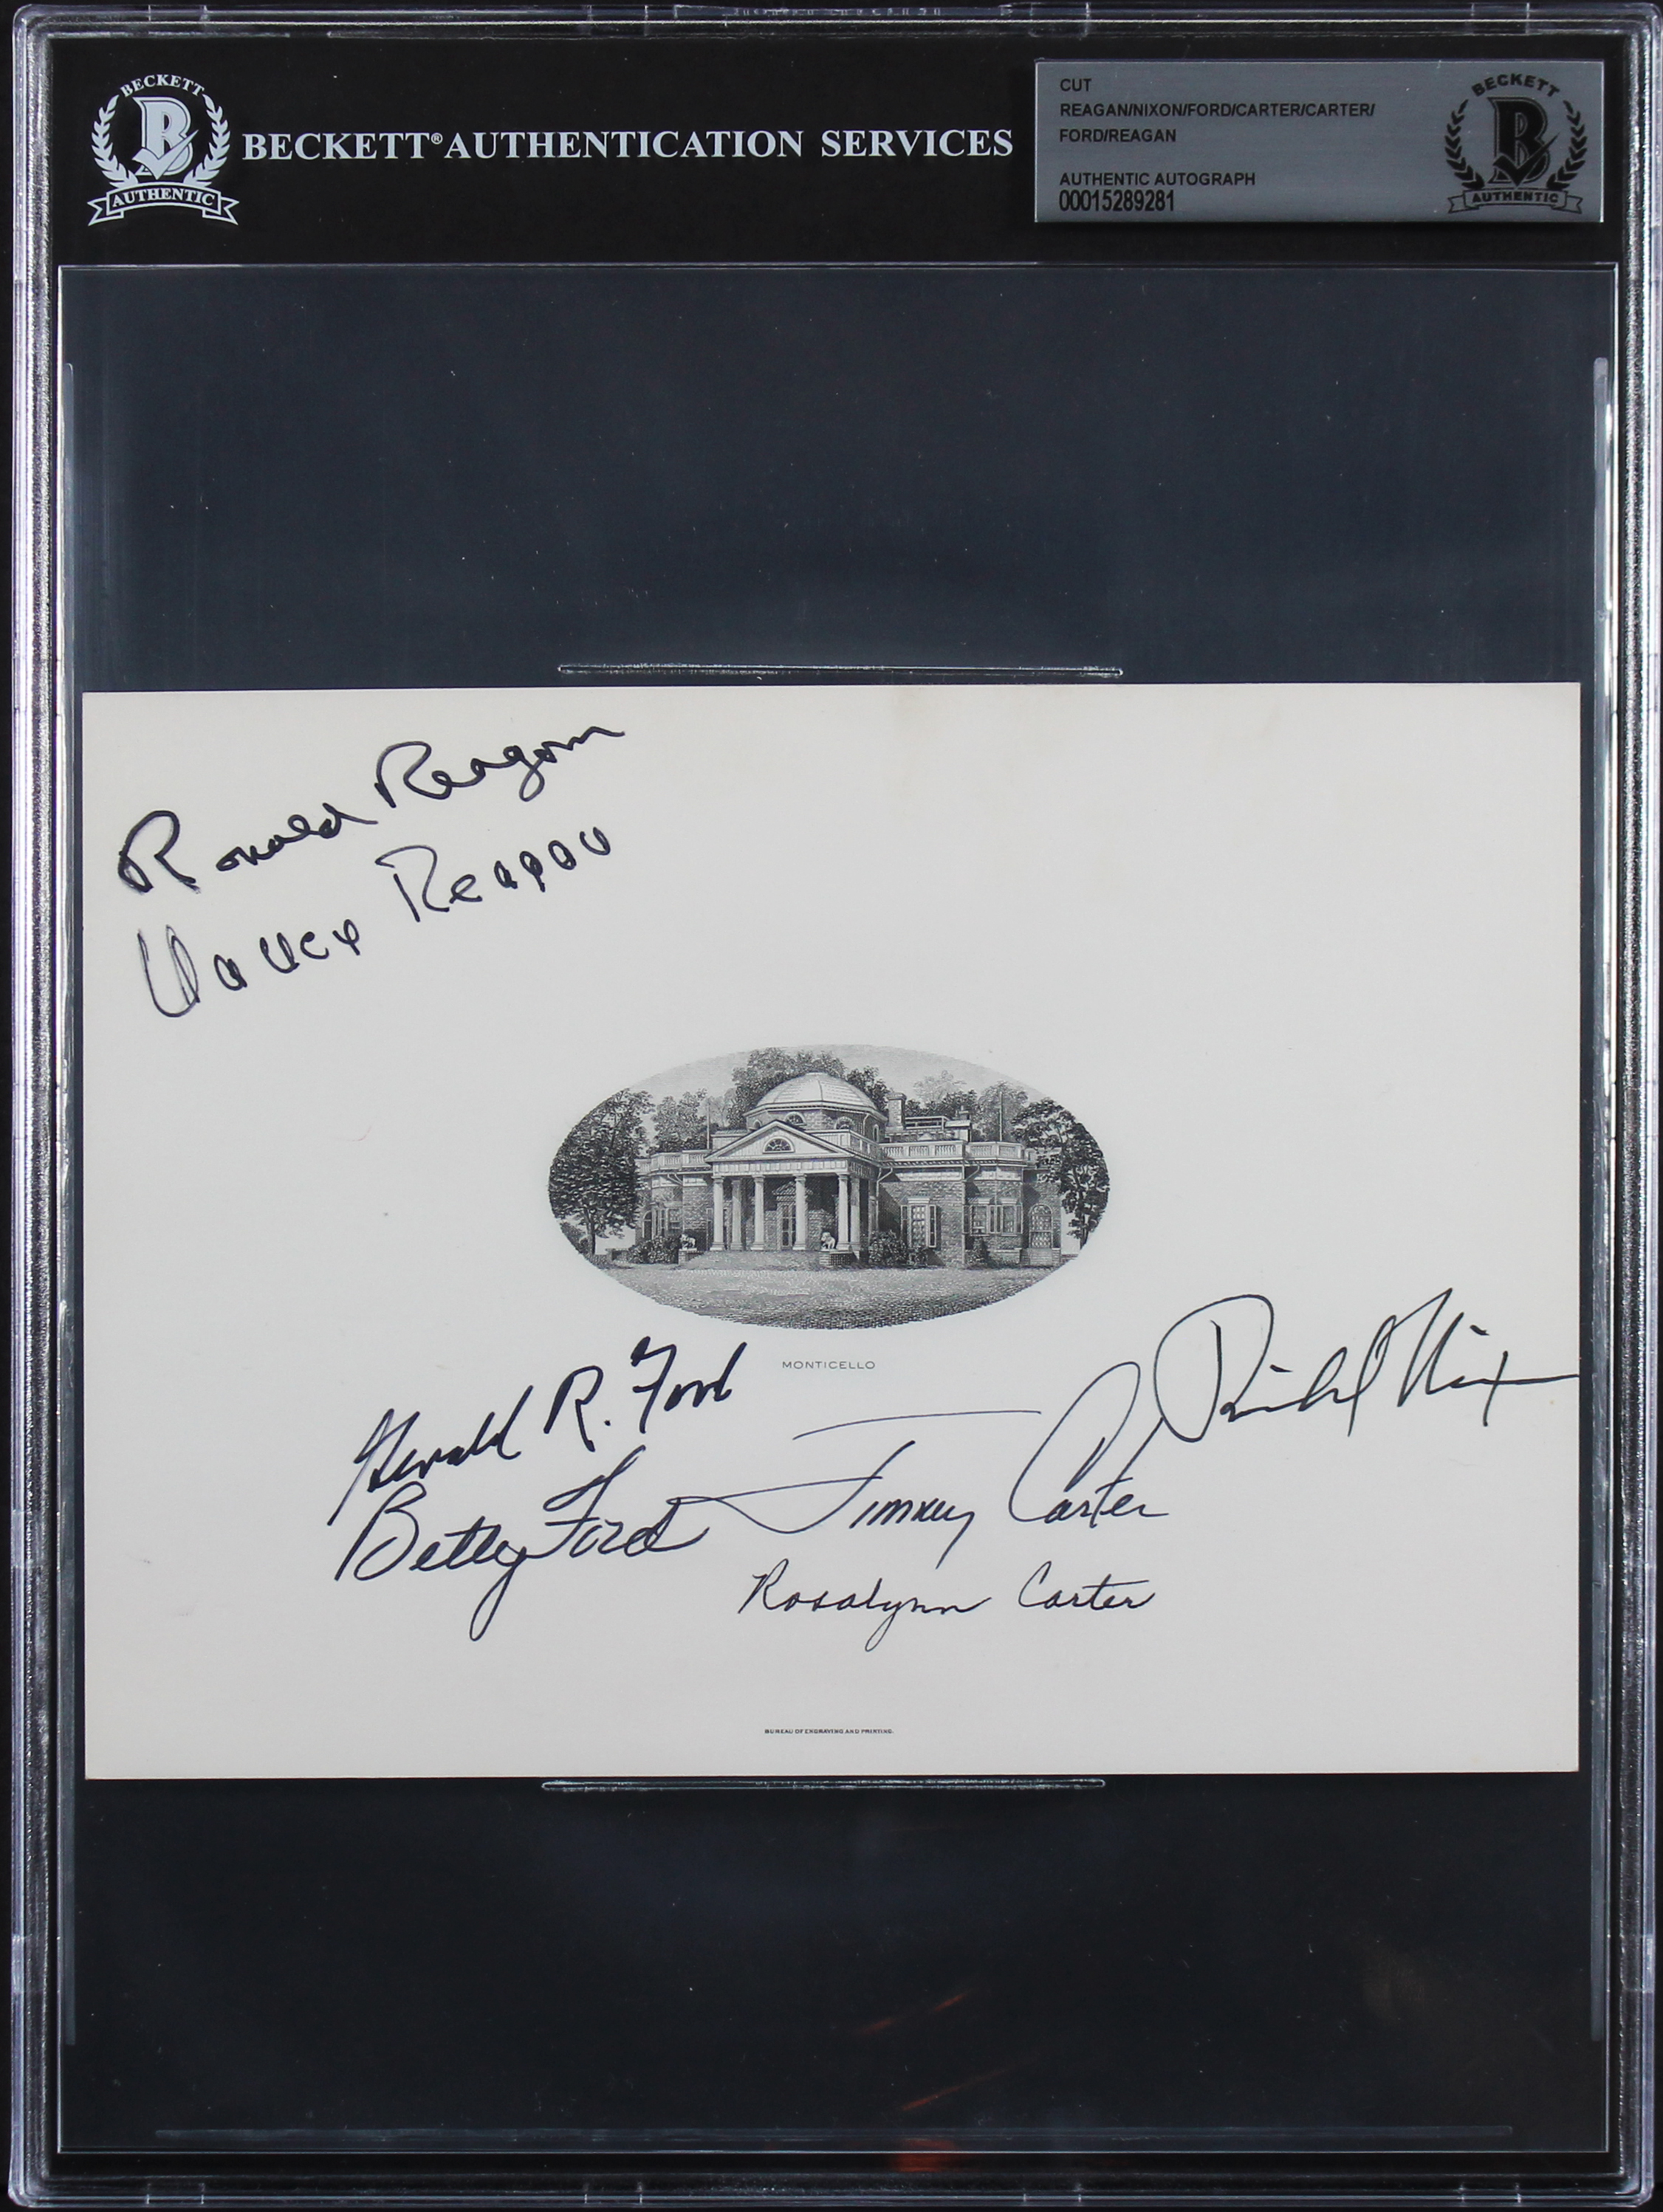 BECKETT
B
AUTHENTIC
BECKETT® AUTHENTICATION SERVICES
CUT
REAGAN/NIXON/FORD/CARTER/CARTER/
FORD/REAGAN
AUTHENTIC AUTOGRAPH
00015289281
BECKETT
B
AUTHENTIC
Ronald Reagan
Nancy Reagan
MONTICELLO
Gerald R. Ford
Betty Ford
Richard Nixon
Jimmy Carter
Rosalynn Carter
BUREAU OF ENGRAVING AND PRINTING.